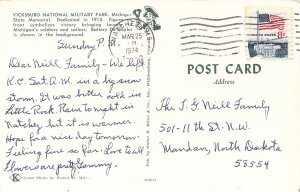 VICKSBURG NATIONAL MILITARY PARK, Michigan
State Memorial. Dedicated in 1916. Figure
front symbolizes victory bringing
Michigan's soldiers and sailors. Battery
is shown in the background.
MAR 25
1974
Sunday P.
Dear Neill Family - We left
K.C. Sat. A.M. in a big snow
storm. It was bitter cold in
Little Rock. Rain tonight in
Natchez, but it is warmer.
Hope for a nice day tomorrow.
Feeling fine so far. Love to all
Flowers are pretty
Color Photo by
POST CARD
Address
The T. G. Neill Family
501-11 th St. N.W.
Mandan, North Dakota
58554